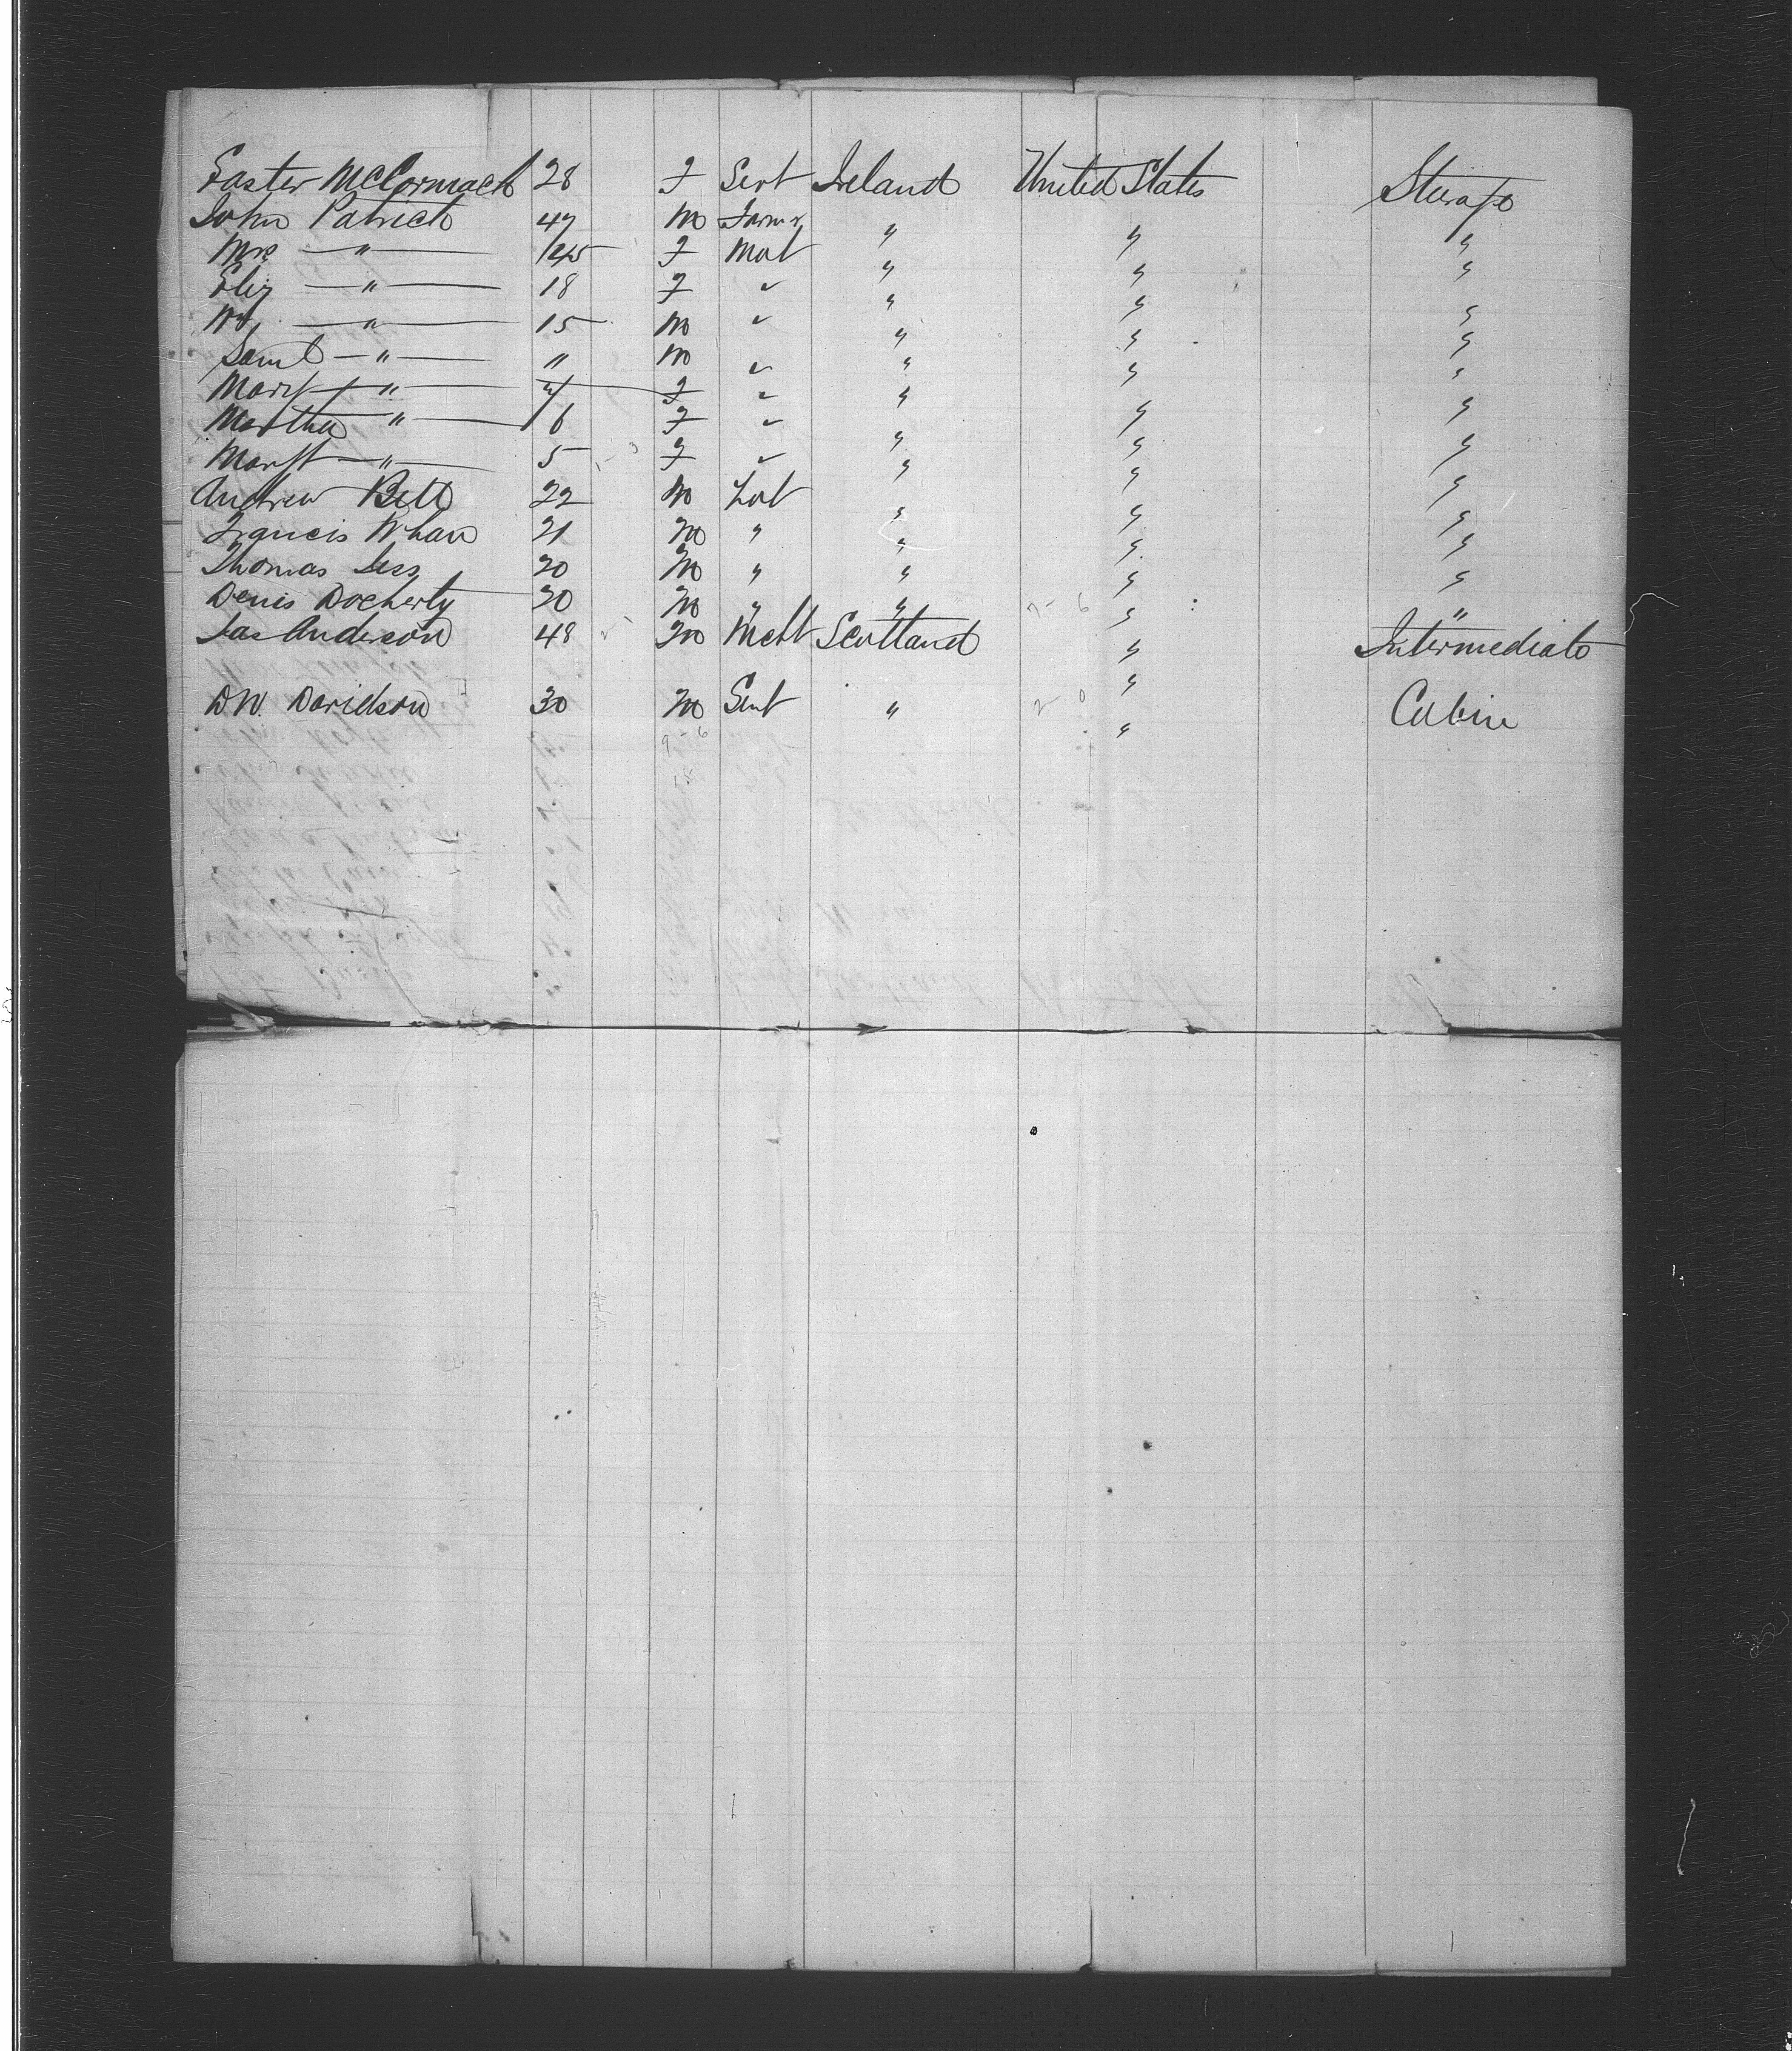 Easter McCormack 28 F Servt Ireland United States Steerage
John Patrick 47 M Farmr " " "
Mrs — " — 45 F Mat " " "
Eliz — " — 18 F " " " "
Wm — " — 15 M " " " "
Saml — " — " M " " " "
Mary — " — F " " " "
Martha " — 6 F " " " "
Margt — " — 5 F " " " "
Andrew Bell 22 M Lab " " "
Francis Whan 21 M " " " "
Thomas Less 20 M " " " "
Denis Docherty 20 M " " " "
Jas Anderson 48 M Mcht Scotland " Intermediate
DW. Davidson 30 M Gent " " Cabin